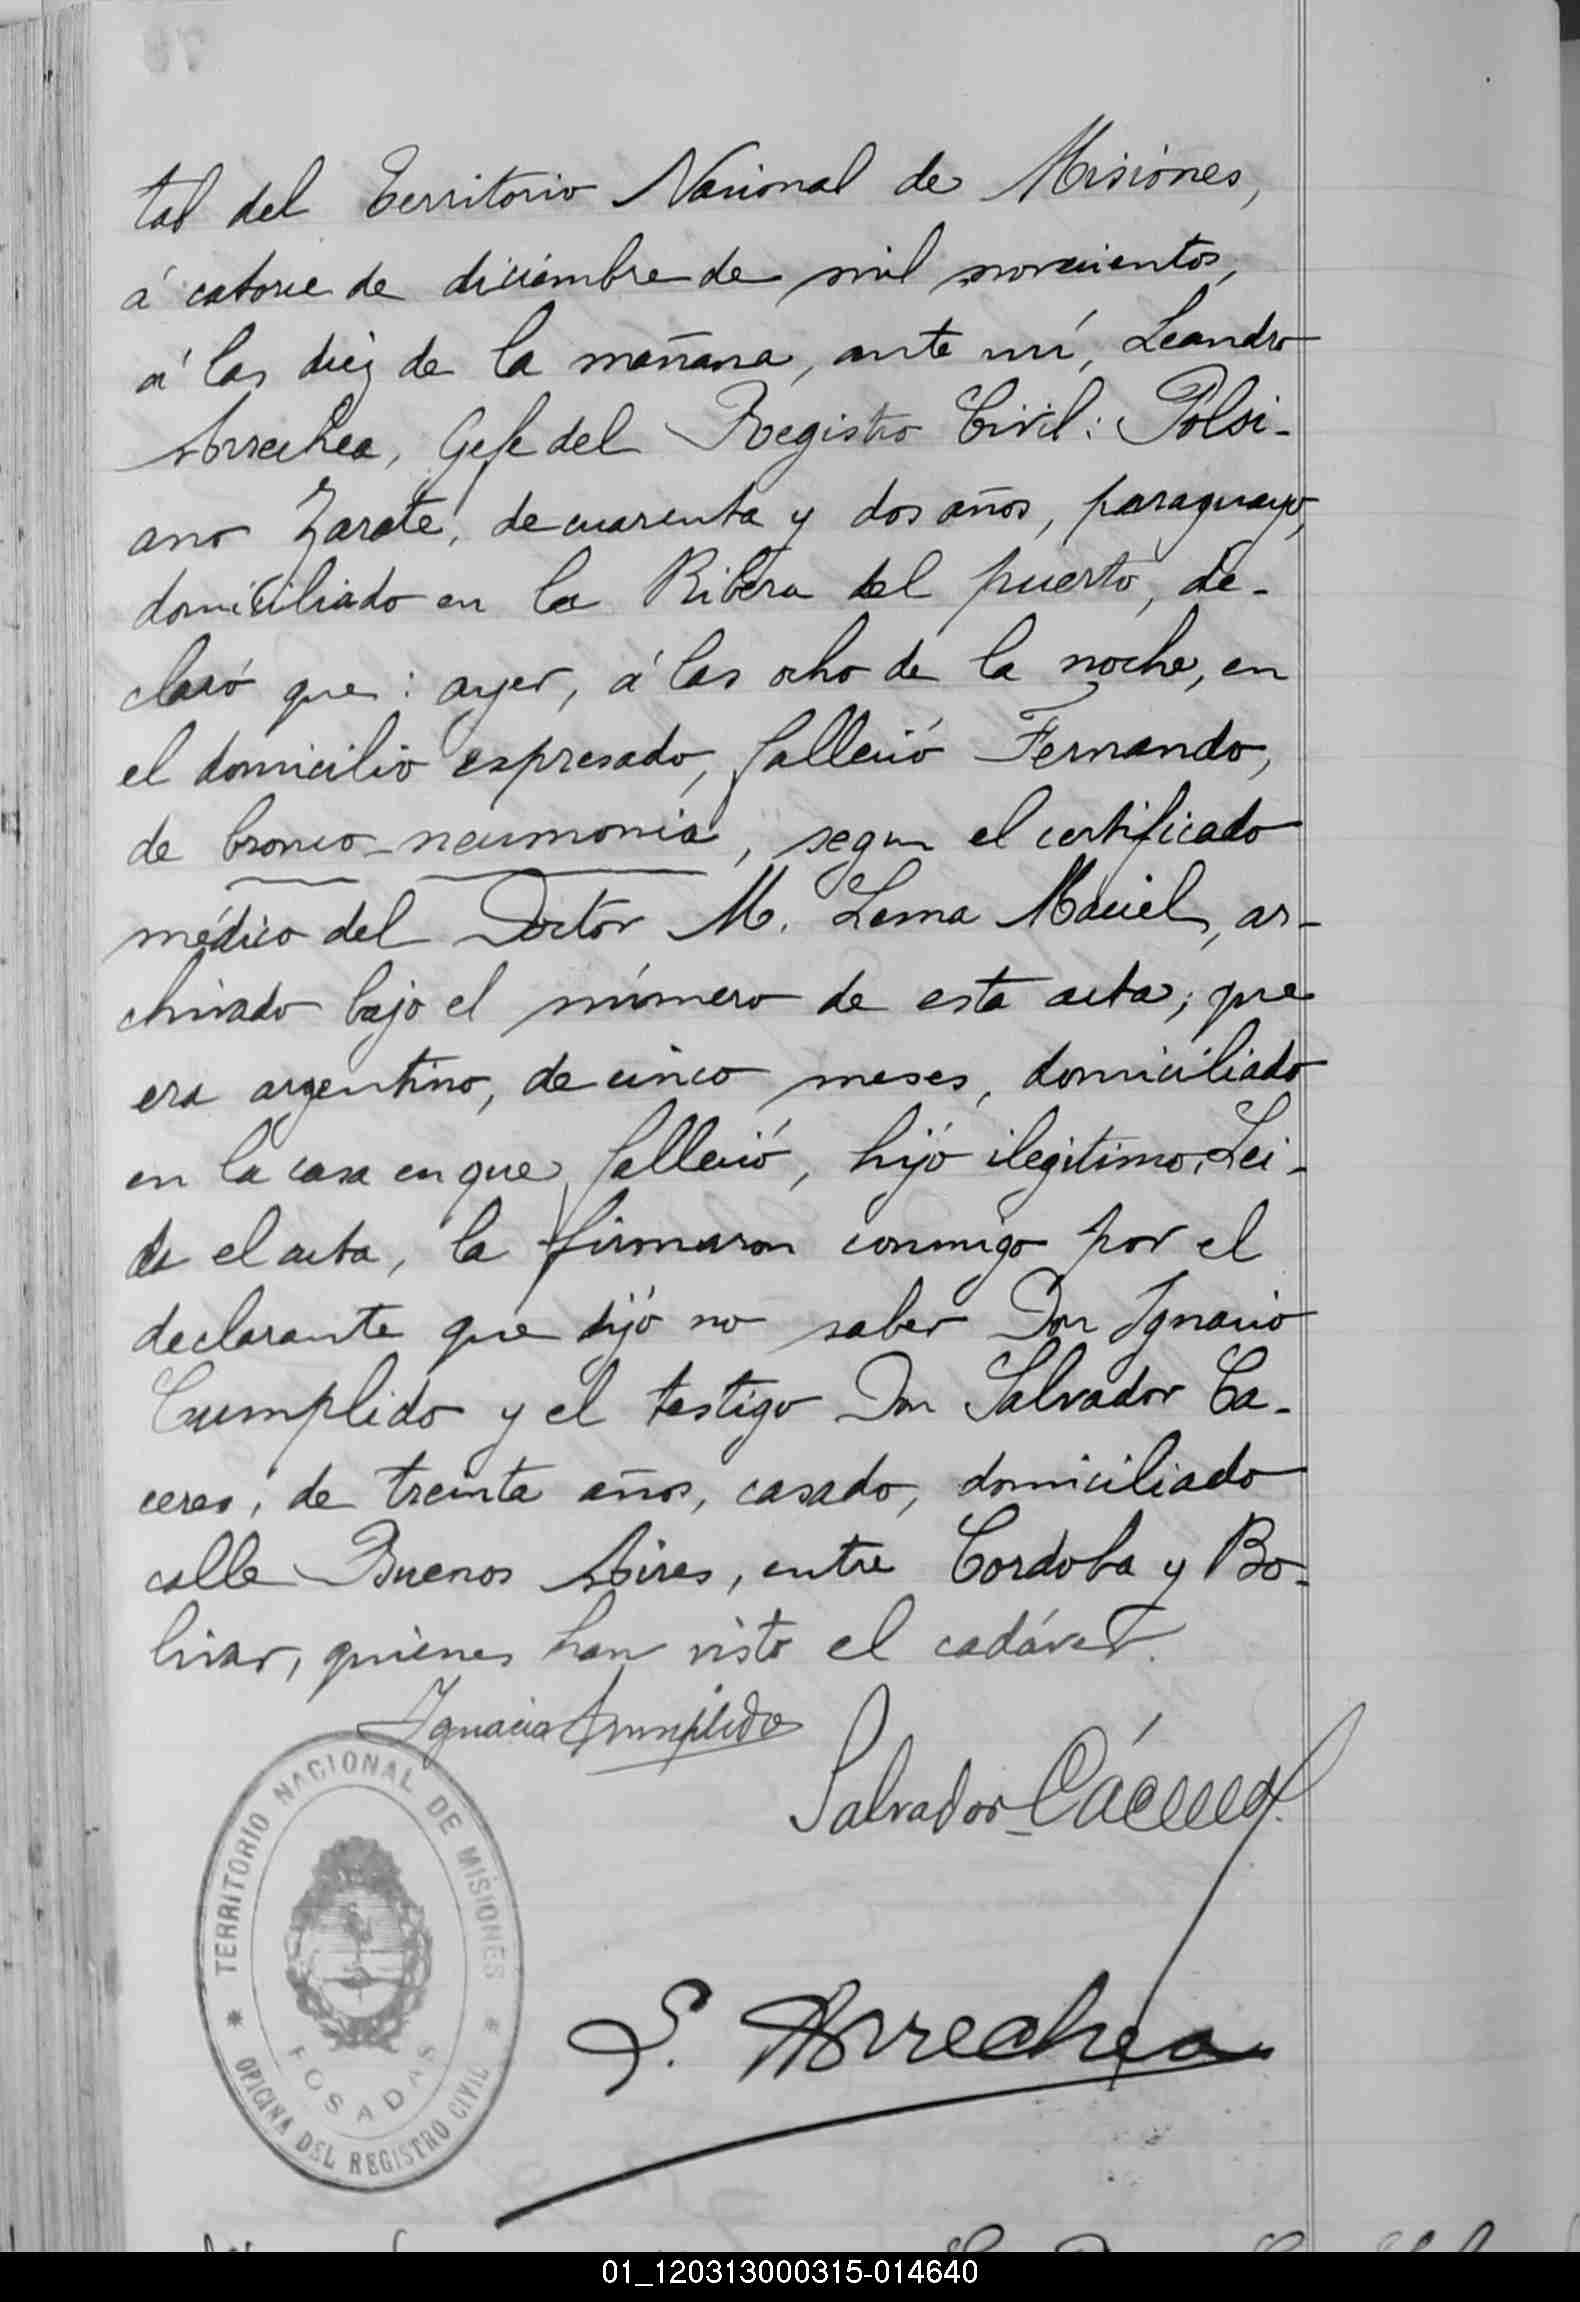 tal del Territorio Nacional de Misiones,
á catorce de diciembre de mil novecientos,
á las diez de la mañana, ante mí, Leandro
Arrechea, Gefe del Registro Civil: Polsi-
ano Zarate, de cuarenta y dos años, paraguayo,
domiciliado en la Ribera del puerto, de-
claró que: ayer, á las ocho de la noche, en
el domicilio espresado, falleció Fernando,
de bronco-neumonia, segun el certificado
médico del Doctor M. Lema Maciel, ar-
chivado bajo el número de esta acta; que
era argentino, de cinco meses, domiciliado
en la casa en que falleció, hijo ilegitimo. Lei-
da el acta, la firmaron conmigo por el
declarante que dijo no saber Don Ignacio
Cumplido y el testigo Don Salvador Ca-
ceres, de treinta años, casado, domiciliado
calle Buenos Aires, entre Cordoba y Bo-
livar, quienes han visto el cadáver.
Ignacio Cumplido
Salvador Cáceres
TERRITORIO NACIONAL DE MISIONES
L. Arrechea
POSADAS
OFICINA DEL REGISTRO CIVIL
01_120313000315-014640